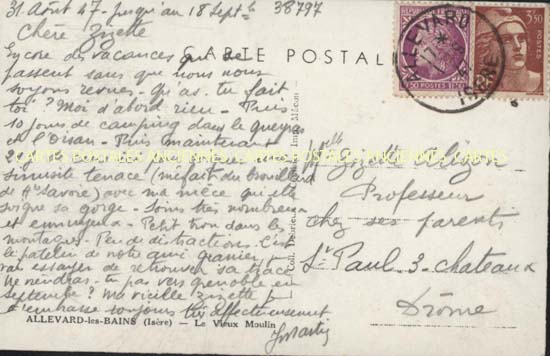 31 Août 47 - jusqu'au 18 Septb 38797
Chère Zizette
Encore des vacances qui se
passent sans que nous nous
soyons revues. Qu'as-tu fait
toi? Moi d'abord rien - Puis
10 jours de camping dans le Queyras
et l'Oisan - Puis maintenant
sinusite tenace (méfait du brouillard
de Hte Savoie) avec ma nièce qui elle
soigne sa gorge - Soins très nombreux
et ennuyeux - Petit trou dans les
montagnes - Peu de distractions. C'est
le patelin de notre
vais essayer de retrouver sa trace
Ne viendras-tu pas vers Grenoble en
septembre? Ma vieille Zizette je
t'embrasse toujours très affectueusement
JMartin
CARTE POSTALE
ALLEVARD
ISÈRE
3,50
POSTES
Melle Zizette
Professeur
chez ses parents
St Paul 3-chateaux
Drôme
CARTES POSTALES ANCIENNES
ALLEVARD-les-BAINS (Isère) - Le Vieux Moulin